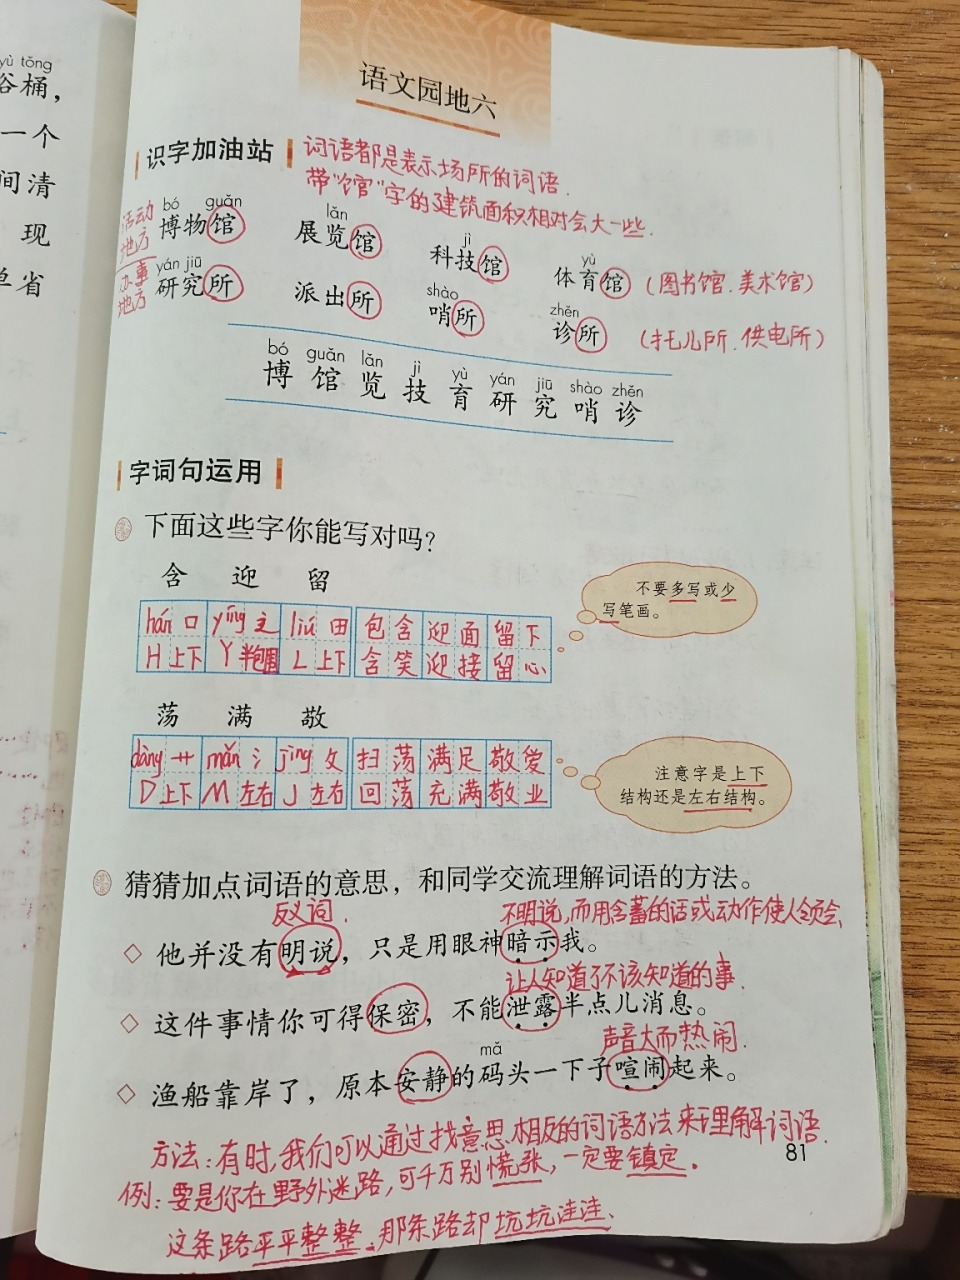 yù tǒng
浴桶，
一个
间清
现
单省
语文园地六
识字加油站
词语都是表示场所的词语.
带“馆”字的建筑面积相对会大一些.
活动地方
bó guǎn lǎn jì yù
博物馆 展览馆 科技馆 体育馆 (图书馆.美术馆)
办事地方
yán jiū shào zhěn
研究所 派出所 哨所 诊所 (托儿所.供电所)
bó guǎn lǎn jì yù yán jiū shào zhěn
博 馆 览 技 育 研 究 哨 诊
字词句运用
下面这些字你能写对吗？
含 迎 留
不要多写或少
写笔画。
hán 口 yíng 辶 liú 田 包含 迎面 留下
H 上下 Y 半包围 L 上下 含笑 迎接 留心
荡 满 敬
dàng 艹 mǎn 氵 jìng 攵 扫荡 满足 敬爱
D 上下 M 左右 J 左右 回荡 充满 敬业
注意字是上下
结构还是左右结构。
猜猜加点词语的意思，和同学交流理解词语的方法。
反义词. 不明说,而用含蓄的话或动作使人领会.
◇ 他并没有明说，只是用眼神暗示我。
让人知道了不该知道的事.
◇ 这件事情你可得保密，不能泄露半点儿消息。
声音大而热闹.
mǎ
◇ 渔船靠岸了，原本安静的码头一下子喧闹起来。
方法:有时,我们可以通过找意思相反的词语方法来理解词语.
81
例:要是你在野外迷路,可千万别慌张,一定要镇定.
这条路平平整整,那条路却坑坑洼洼.